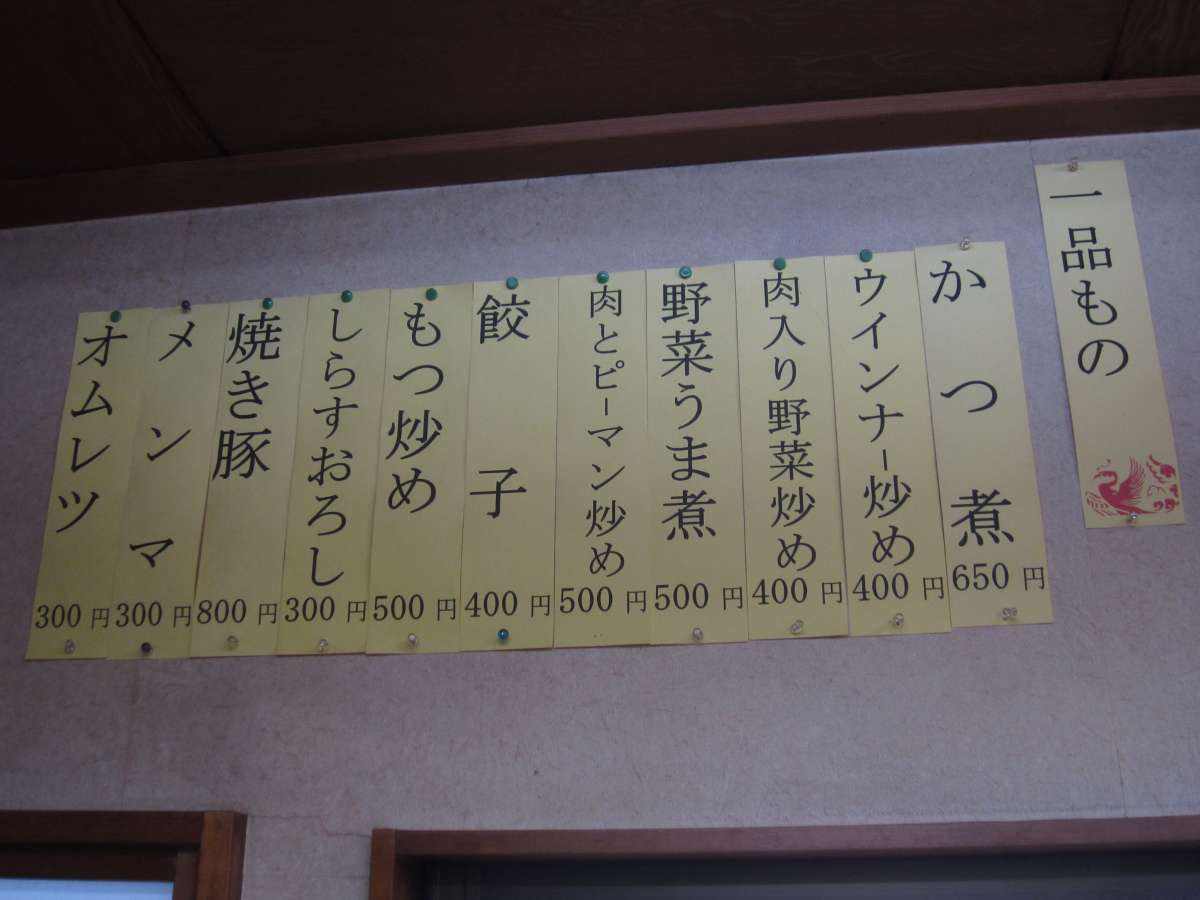 一品もの
かつ煮 650円
ウインナー炒め 400円
肉入り野菜炒め 400円
野菜うま煮 500円
肉とピーマン炒め 500円
餃子 400円
もつ炒め 500円
しらすおろし 300円
焼き豚 800円
メンマ 300円
オムレツ 300円